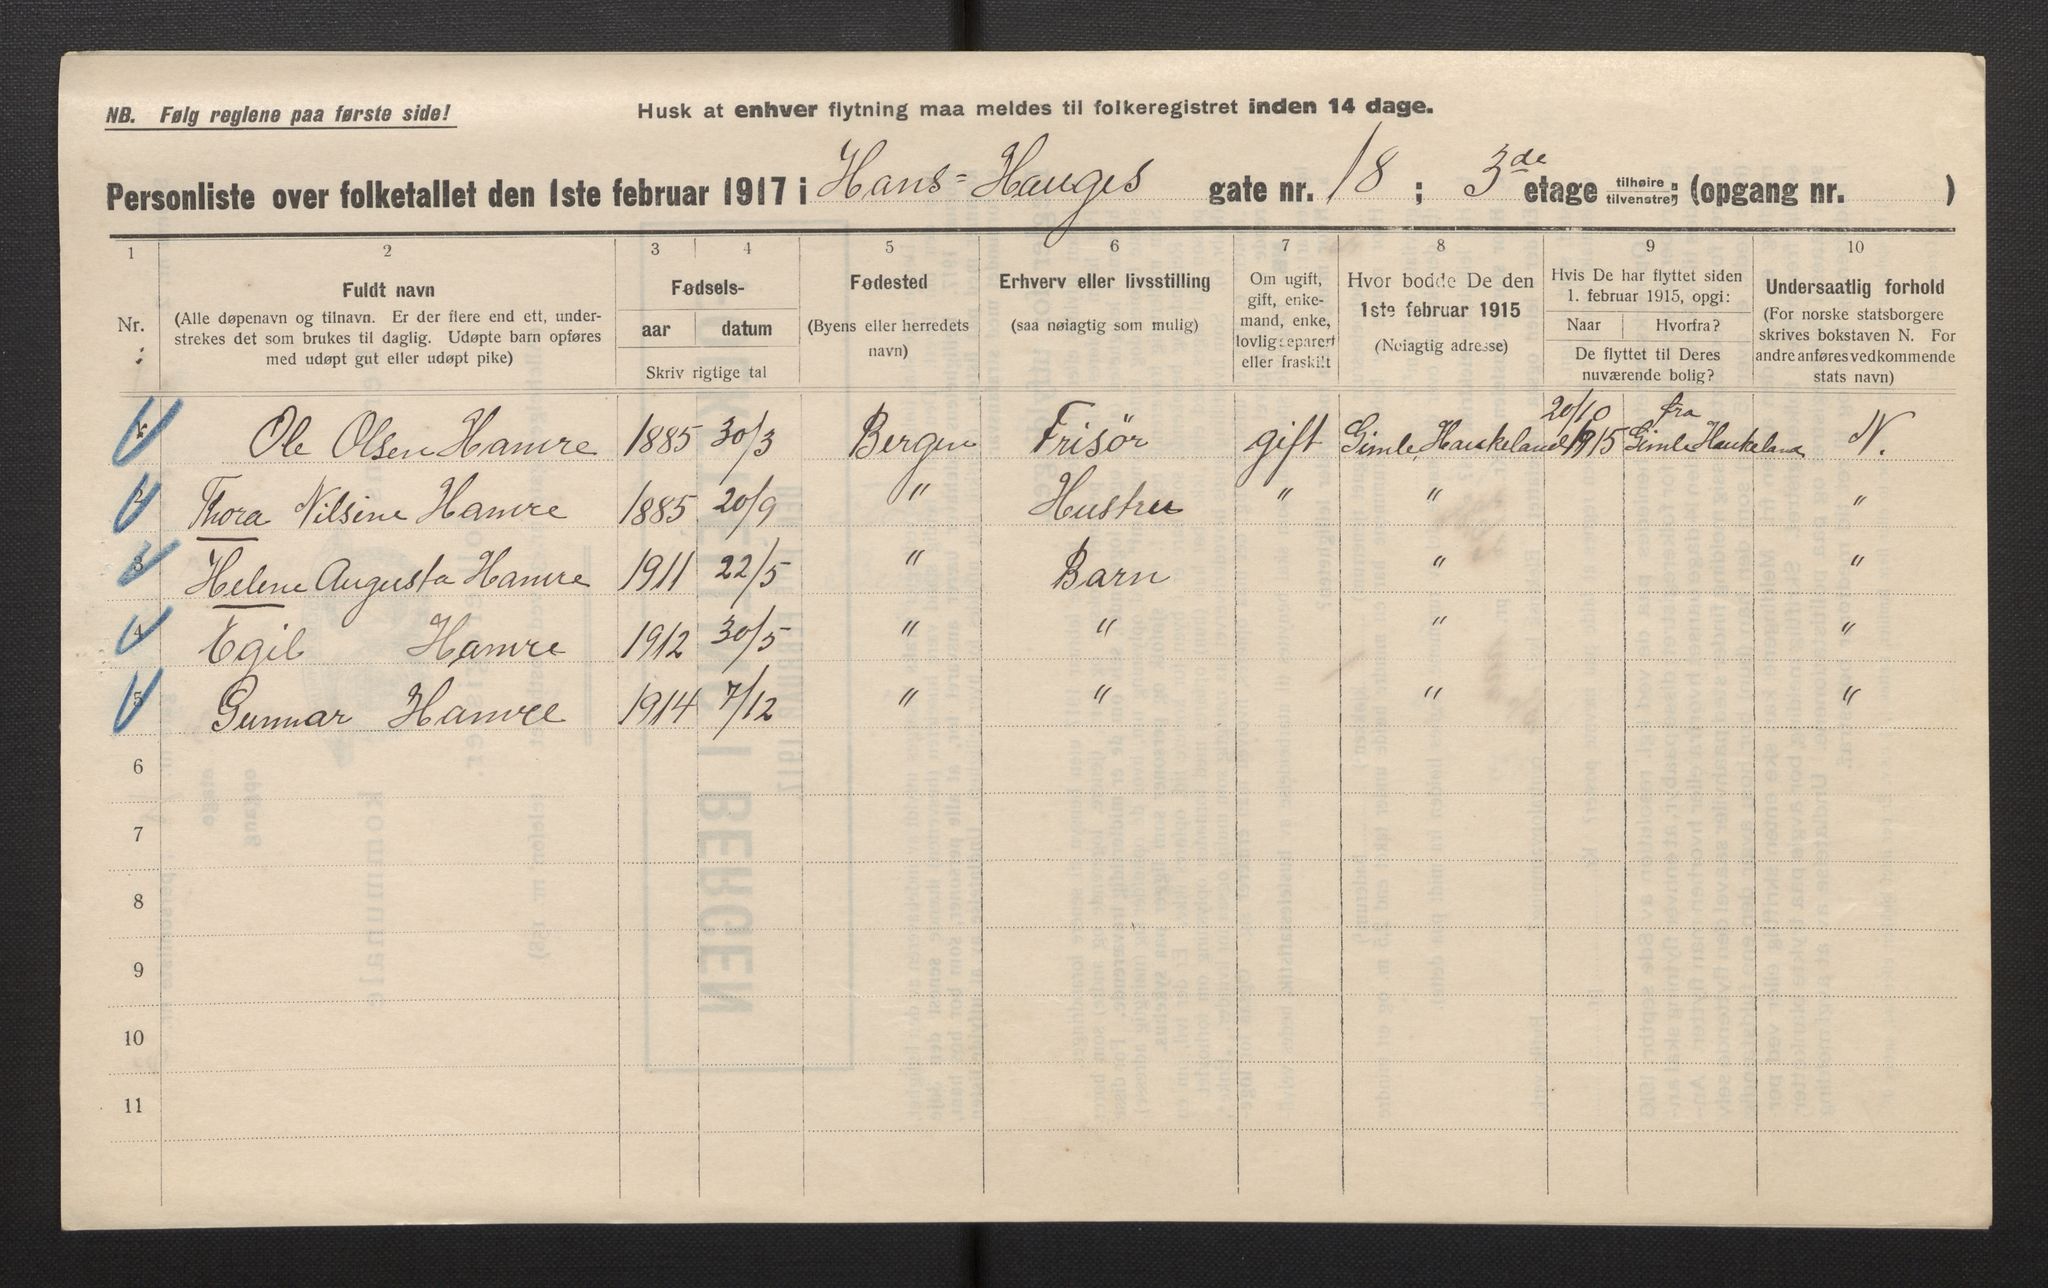 NB. Følg reglene paa første side! Husk at enhver flytning maa meldes til folkeregistret inden 14 dage.
Personliste over folketallet den 1ste februar 1917 i Hans=Hauges gate nr. 18 ; 3de etage tilhøire tilvenstre; (opgang nr. )
1 2 3 4 5 6 7 8 9 10
Nr. Fuldt navn (Alle døpenavn og tilnavn. Er der flere end ett, under-
strekes det som brukes til daglig. Udøpte barn opføres
med udøpt gut eller udøpt pike)
Fødsels-
aar datum
Skriv rigtige tal
Fødested
(Byens eller herredets
navn)
Erhverv eller livsstilling
(saa nøiagtig som mulig)
Om ugift,
gift, enke-
mand, enke,
lovlig separert
eller fraskilt
Hvor bodde De den
1ste februar 1915
(Nøiagtig adresse)
Hvis De har flyttet siden
1. februar 1915, opgi:
Naar Hvorfra?
De flyttet til Deres
nuværende bolig?
Undersaatlig forhold
(For norske statsborgere
skrives bokstaven N. For
andre anføres vedkommende
stats navn)
1 Ole Olsen Hamre 1885 30/3 Bergen Frisör gift Gimle, Haukeland 20/10 1915 fra Gimle Haukeland N.
2 Thora Nilsine Hamre 1885 20/9 " Hustru " " "
3 Helene Augusta Hamre 1911 22/5 " Barn " "
4 Egil Hamre 1912 30/5 " " " "
5 Gunnar Hamre 1914 7/12 " " " "
6
7
8
9
10
11